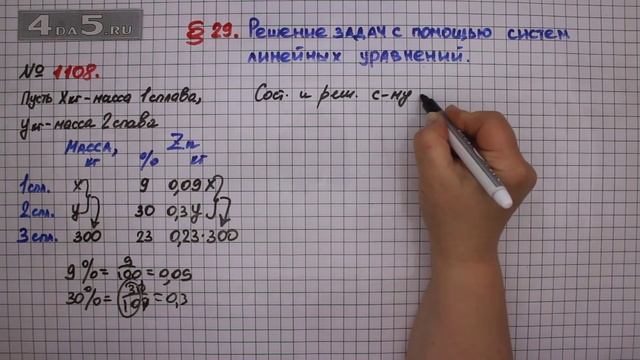 4DA5.RU
§ 29. Решение задач с помощью систем
линейных уравнений.
№ 1108.
Пусть Xкг - масса 1 сплава,
yкг - масса 2 спава
Сост. и реш. с-му
Масса, кг % Zn кг
1 спл. X 9 0,09X
2 спл. y 30 0,3y
3 спл. 300 23 0,23·300
9% = 9/100 = 0,09
30% = 30/100 = 0,3